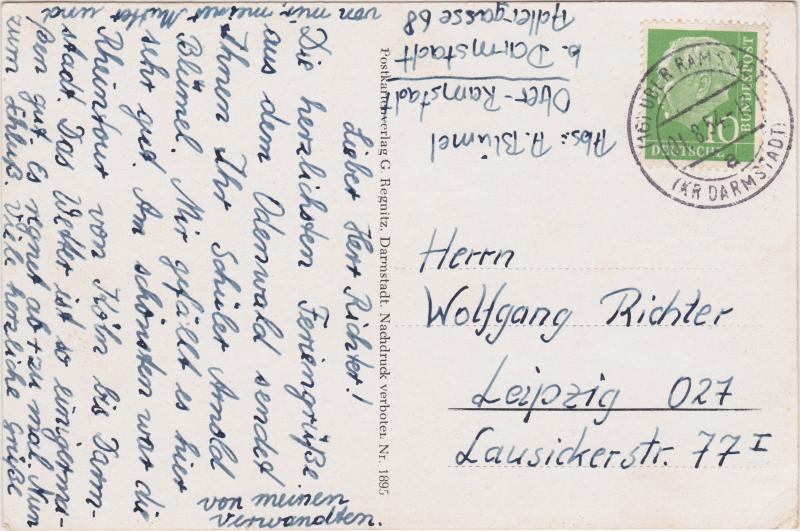 Lieber Herr Richter!
Die herzlichsten Feriengrüße
aus dem Odenwald sendet
Ihnen Ihr Schüler Arnold
Blümel. Mir gefällt es hier
sehr gut. Am schönsten war die
Rheintour von Köln bis Darm-
stadt. Das Wetter ist so einigerma-
ßen gut. Es regnet ab + zu mal. Nun
zum Schluß. Viele herzliche Grüße
von mir, meiner Mutter und
von meinen
Verwandten.
Postkartenverlag G. Regnitz, Darmstadt. Nachdruck verboten. Nr. 1895
Abs: A. Blümel
Ober-Ramstadt
b. Darmstadt
Adlergasse 68
(16) OBER RAMSTADT
8.54
a
(KR DARMSTADT)
10
DEUTSCHE
BUNDESPOST
Herrn
Wolfgang Richter
Leipzig O27
Lausickerstr. 77 I